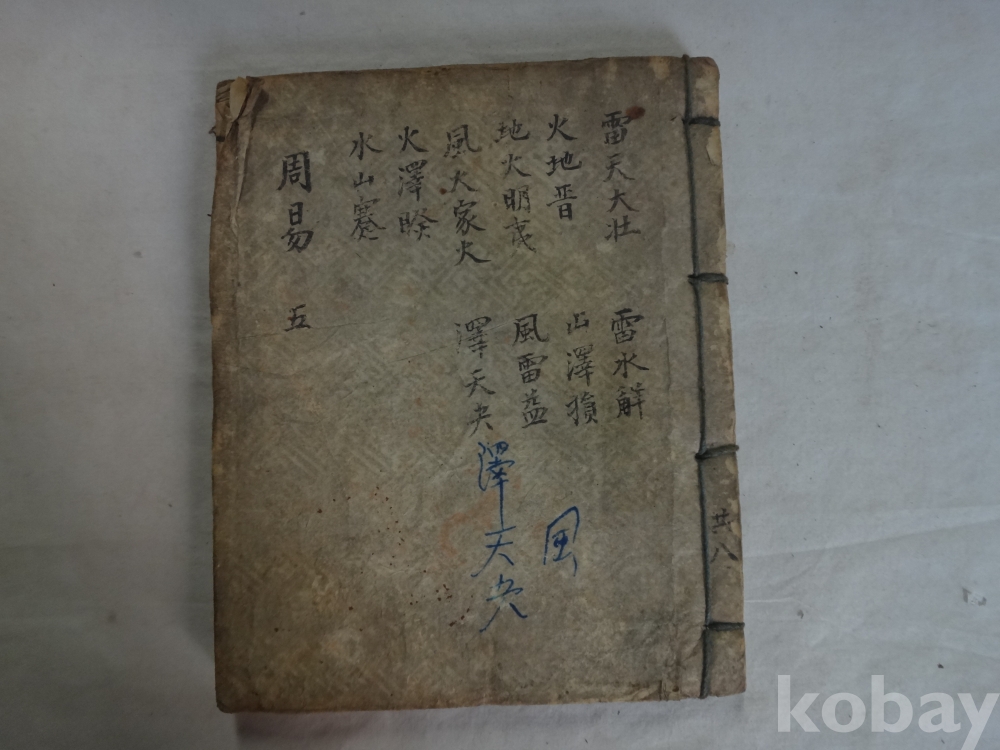 雷天大壯
火地晋
地火明夷
風火家火
火澤睽
水山蹇
雷水解
山澤損
風雷益
澤天夬
周易 五
澤天夬
風
共八
kobay